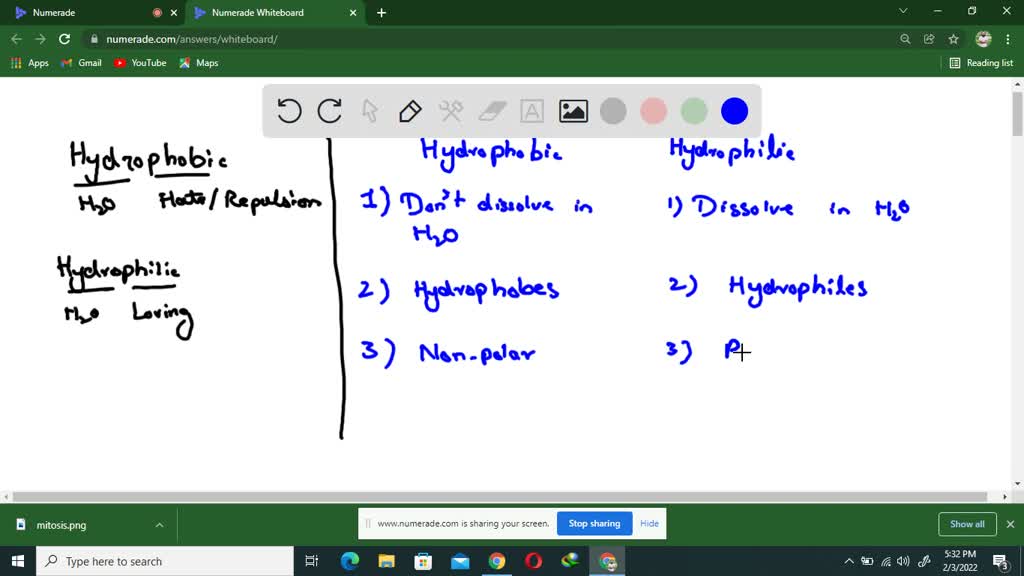 Numerade
Numerade Whiteboard
numerade.com/answers/whiteboard/
Apps
Gmail
YouTube
Maps
Reading list
A
Hydrophobic
H₂O Hate/Repulsion
Hydrophilic
H₂O Loving
Hydrophobic
1) Don't dissolve in
H₂O
2) Hydrophobes
3) Non-polar
Hydrophilic
1) Dissolve in H₂O
2) Hydrophiles
3) P
mitosis.png
www.numerade.com is sharing your screen.
Stop sharing
Hide
Show all
Type here to search
5:32 PM
2/3/2022
3